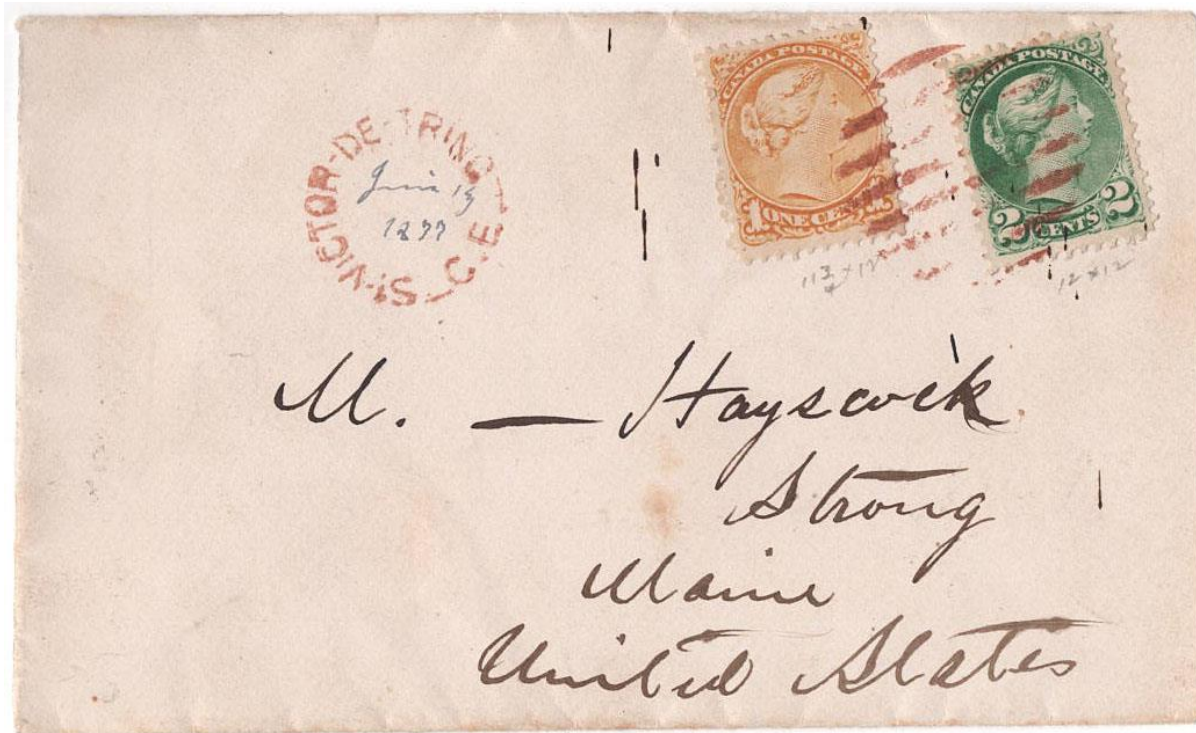 ST-VICTOR-DE-TRING
C.E
1877
CANADA POSTAGE
1 ONE CENT 1
CANADA POSTAGE
2 CENTS 2
12 x 12
M. — Hayscock
Strong
Maine
United States